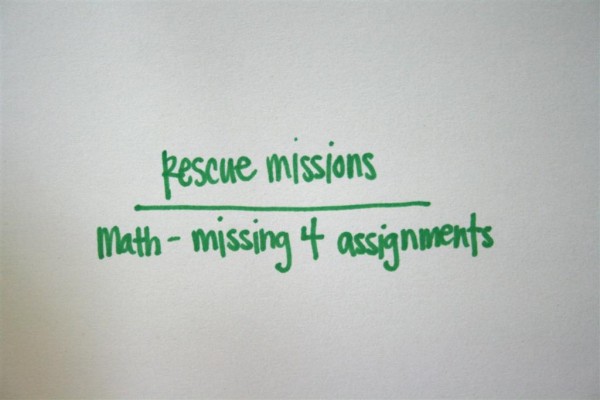 Rescue missions
Math - missing 4 assignments